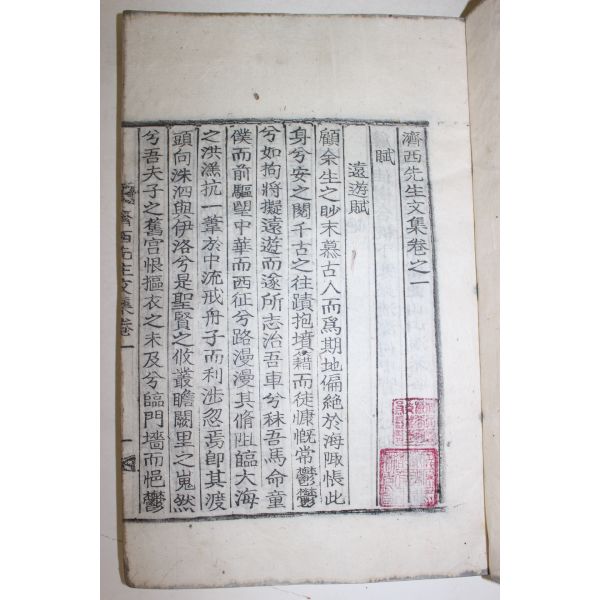 濟西先生文集卷之一
賦
遠遊賦
顧余生之眇末慕古人而爲期地偏絶於海陬悵此
身兮安之閱千古之往蹟抱墳籍而徒慷慨常鬱鬱
兮如拘將擬遠遊而遂所志治吾車兮秣吾馬命童
僕而前驅望中華而西征兮路漫漫其脩阻臨大海
之洪濤抗一葦於中流戒舟子而利涉忽焉卽其渡
頭向洙泗與伊洛兮是聖賢之攸叢瞻闕里之嵬然
兮吾夫子之舊宮悵摳衣之未及兮臨門墻而悒鬱
濟西先生文集卷一
一